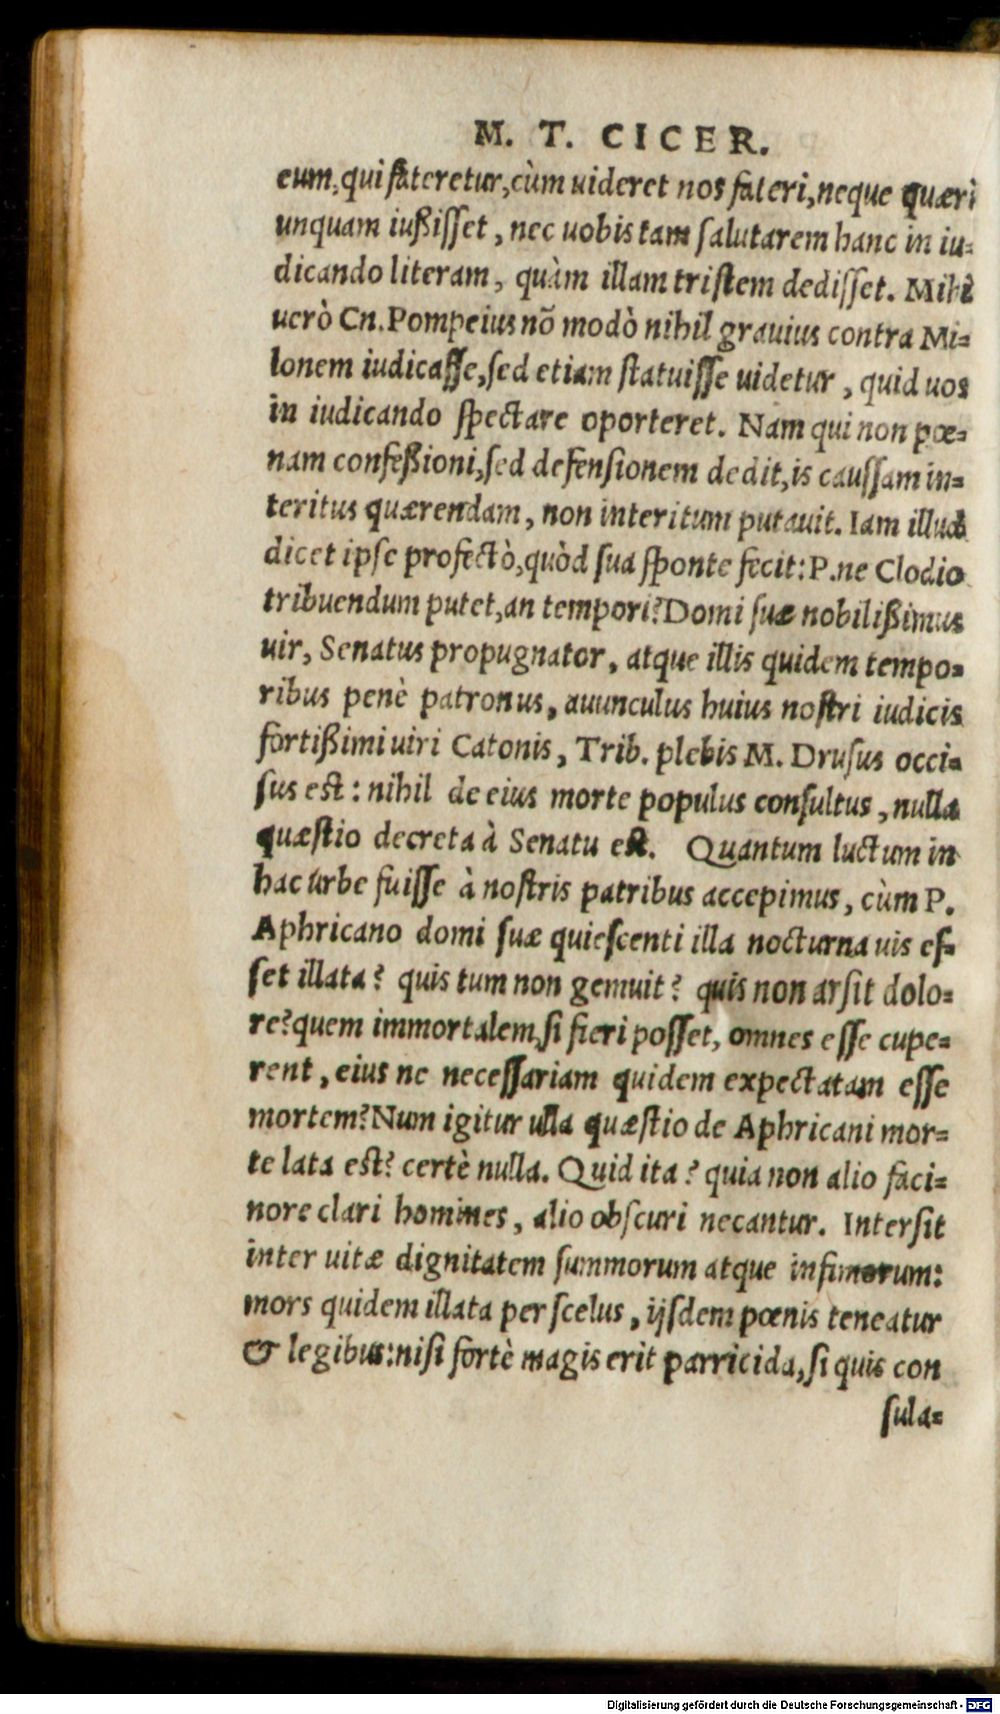 M. T. CICER.
eum, qui fateretur, cùm uideret nos fateri, neque quæri
unquam iußisset, nec uobis tam salutarem hanc in iu-
dicando literam, quàm illam tristem dedisset. Mihi
uerò Cn. Pompeius nõ modò nihil grauius contra Mi-
lonem iudicasse, sed etiam statuisse uidetur, quid uos
in iudicando spectare oporteret. Nam qui non pœ-
nam confeßioni, sed defensionem dedit, is caussam in-
teritus quærendam, non interitum putauit. Iam illud
dicet ipse profectò, quòd sua sponte fecit: P. ne Clodio
tribuendum putet, an tempori? Domi suæ nobilißimus
uir, Senatus propugnator, atque illis quidem tempo-
ribus penè patronus, auunculus huius nostri iudicis
fortißimi uiri Catonis, Trib. plebis M. Drusus occi-
sus est: nihil de eius morte populus consultus, nulla
quæstio decreta à Senatu est. Quantum luctum in
hac urbe fuisse à nostris patribus accepimus, cùm P.
Aphricano domi suæ quiescenti illa nocturna uis es-
set illata? quis tum non gemuit? quis non arsit dolo-
re? quem immortalem, si fieri posset, omnes esse cupe-
rent, eius ne necessariam quidem expectatam esse
mortem? Num igitur ulla quæstio de Aphricani mor-
te lata est? certè nulla. Quid ita? quia non alio faci-
nore clari homines, alio obscuri necantur. Intersit
inter uitæ dignitatem summorum atque infimorum:
mors quidem illata per scelus, ijsdem pœnis teneatur
& legibus: nisi fortè magis erit parricida, si quis con
sula-
Digitalisierung gefördert durch die Deutsche Forschungsgemeinschaft - DFG